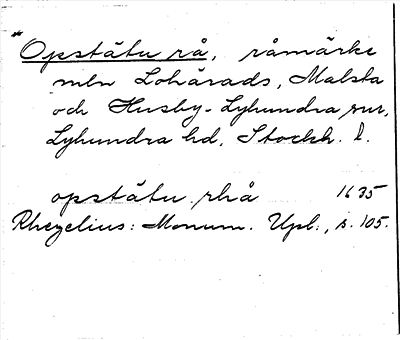 *Opstätu rå, råmärke
mln Lohärads, Malsta
och Husby-Lyhundra snr,
Lyhundra hd, Stockh. l.
opstätu rhå 1635
Rhezelius: Monum. Upl., s. 105.